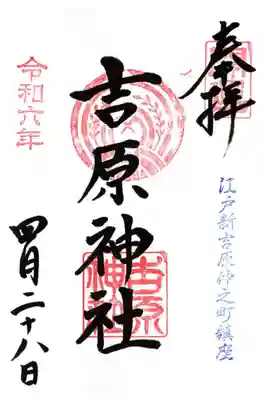 奉拝
江戸新吉原仲之町鎮座
吉原神社
吉原
神社
令和六年
四月二十八日